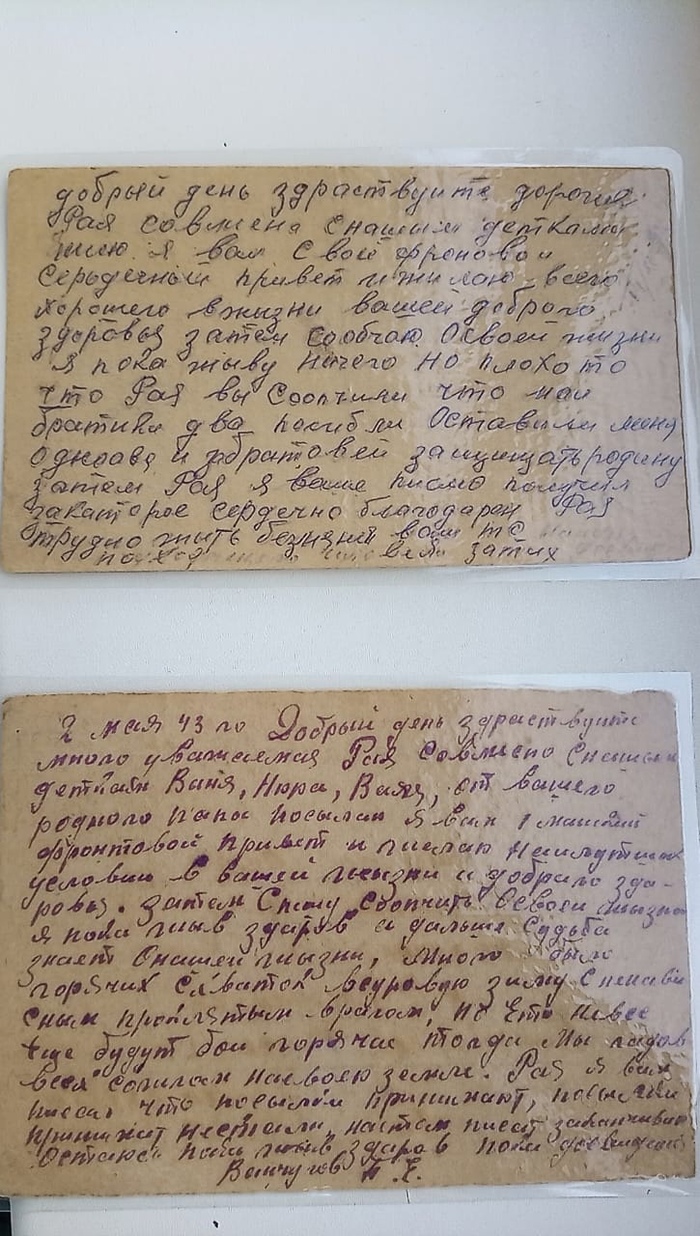 добрый день здраствуите дорогия
Рая совмена снашими детками
шлю я вам Свой фроновои
Серьдечный привет и жилаю всего
хорошего вжизни вашей доброго
здоровья затем сообчаю Освоей жизни
я пока жыву ничего но плохо то
что Рая вы Соопчили что маи
братика два погибли Оставили меня
одноава и збратовей защищать родину
затем Рая я ваше писмо получил
закаторое сердечно благодарен Рая
трудно жить безменя вам
затих
2 мая 43 го Добрый день здраствуите
много уважаемая Рая Совмено Снашими
детками Ваня, Нюра, Валя, от вашего
родного папа посылаю я вам 1 маиский
фронтовой привет и жилаю наилутших
условии в вашей жызни и доброго здо-
ровья. Затем Спешу Соопчить Освоеи жызни
я пока жыв здаров а дальше Судьба
знает Онашей жызни, Много было
горячих Схваток всуровую зиму Сненави
сным проклятым врагом, но Ето невсе
Еще будут бои горячае тогда Мы гадов
всех сотжам насвоею земле. Рая я вам
писал что посылки принимают, посылки
принимат нестали, настом писат заканчиваю
Остаюсь пока жыв здаров пока досвидания
Ванчугов П. Е.